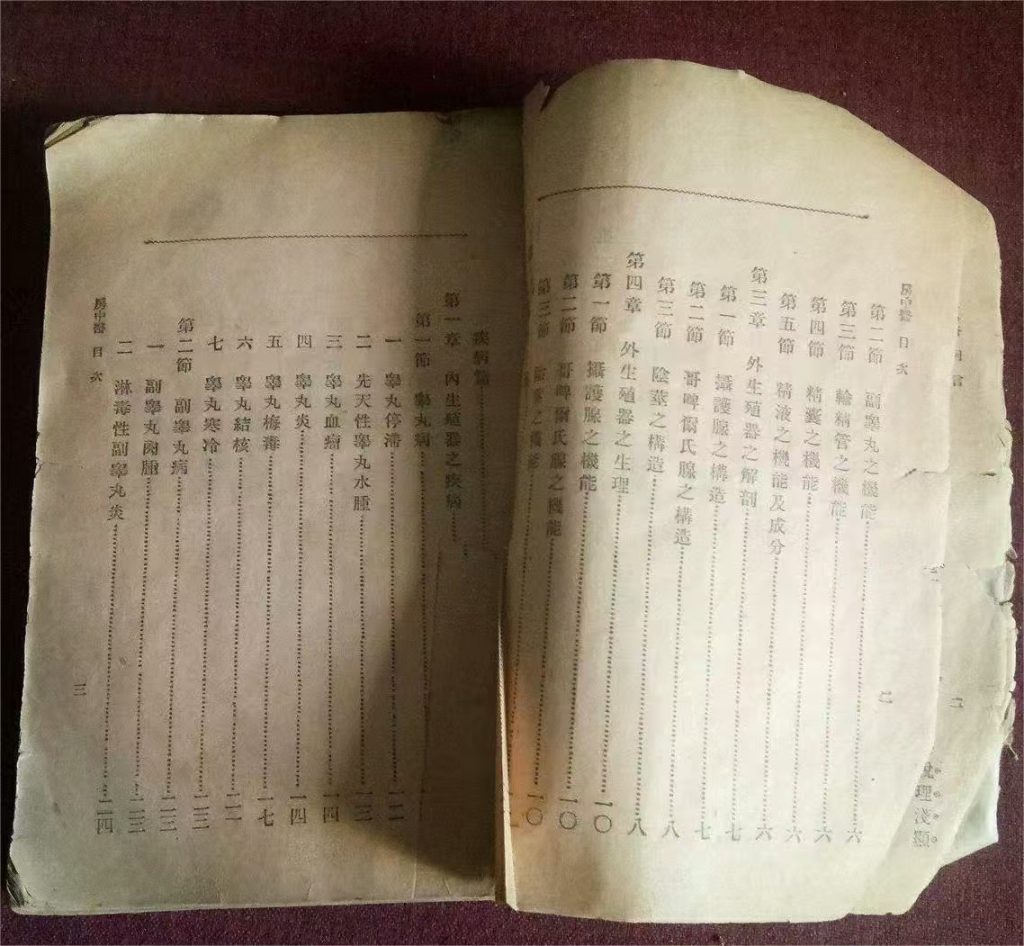 說理淺顯
二
房中醫 目次
二
第二節 副睾丸之機能……六
第三節 輸精管之機能……六
第四節 精囊之機能……六
第五節 精液之機能及成分……六
第三章 外生殖器之解剖……七
第一節 攝護腺之構造……七
第二節 哥啤爾氏腺之構造……八
第三節 陰莖之構造……八
第四章 外生殖器之生理……一〇
第一節 攝護腺之機能……一〇
第二節 哥啤爾氏腺之機能……一〇
第三節 陰莖之機能……
疾病篇……
第一章 內生殖器之疾病……
第一節 睾丸病……
一 睾丸停滯……一二
二 先天性睾丸水腫……一三
三 睾丸血瘤……一四
四 睾丸炎……一四
五 睾丸梅毒……一七
六 睾丸結核……二一
七 睾丸寒冷……二二
第二節 副睾丸病……二三
一 副睾丸肉腫……二三
二 淋毒性副睾丸炎……二四
房中醫 目次
三